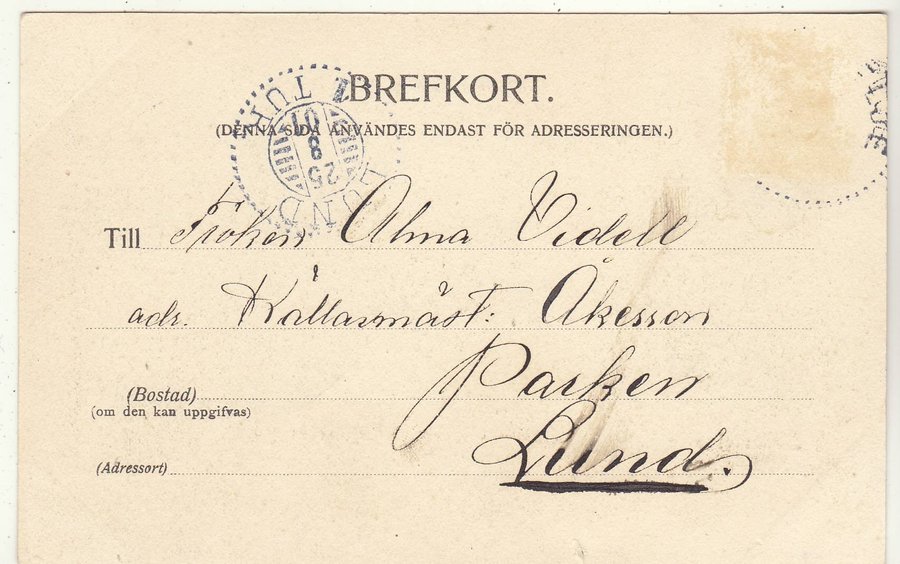 BREFKORT.
(DENNA SIDA ANVÄNDES ENDAST FÖR ADRESSERINGEN.)
LUND
25
8
01
1 TUR
Till Fröken Alma Videll
adr. Källarmäst: Åkesson
(Bostad) Parken
(om den kan uppgifvas)
(Adressort) Lund.